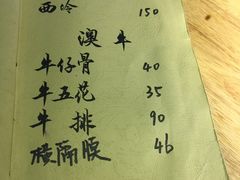 西冷 150
澳牛
牛仔骨 40
牛五花 35
牛排 90
横隔膜 46